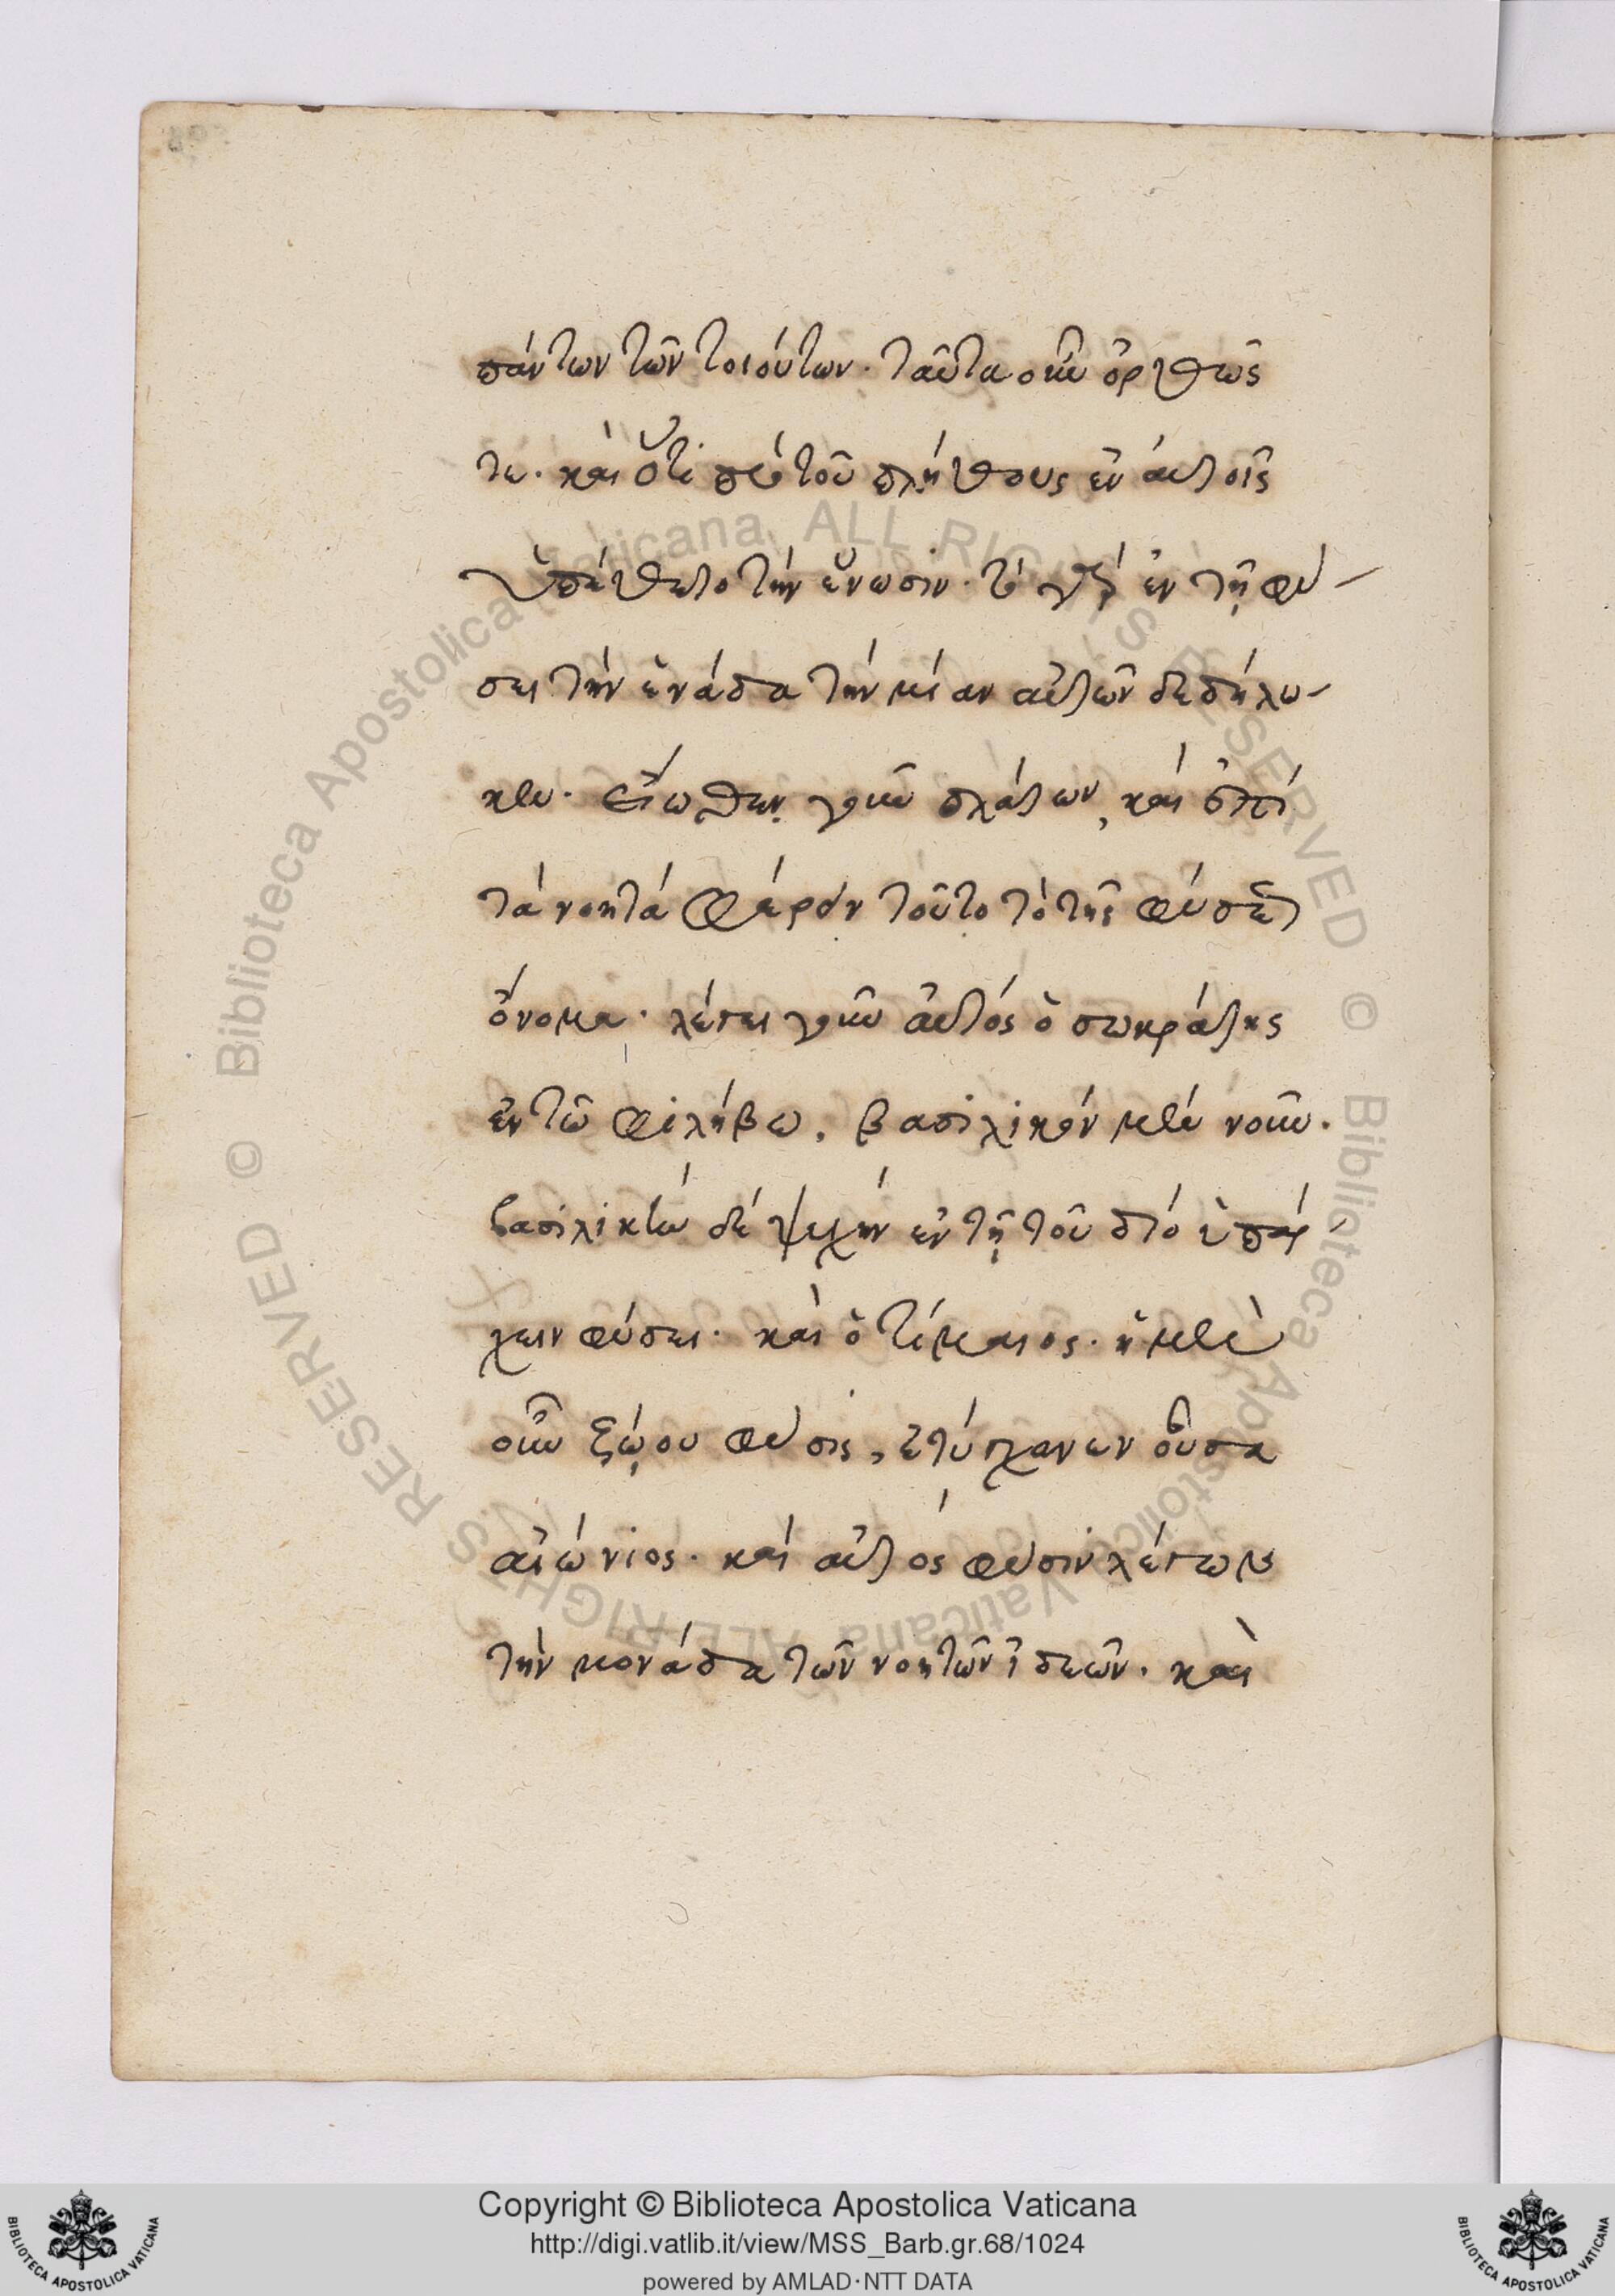 πάντων τῶν τοιούτων. ταῦτα οὖν ὀρθῶς
τε. καὶ ὅτι πρὸ τοῦ πλήθους ἐν αὐτοῖς
ὑπέθετο τὴν ἕνωσιν. τὸ γὰρ ἐν τῇ φύ-
σει τὴν ἑνάδα τὴν μίαν αὐτῶν δεδήλω-
κεν. εἴωθεν γοῦν πλάτων, καὶ ἐπὶ
τὰ νοητὰ φέρειν τοῦτο τὸ τῆς φύσεως
ὄνομα. λέγει γοῦν αὐτὸς ὁ σωκράτης
ἐν τῷ φιλήβω, βασιλικὸν μὲν νοῦν.
βασιλικὴν δὲ ψυχὴν ἐν τῇ τοῦ διὸ ὑπάρ
χειν φύσει. καὶ ὁ τίμαιος. ἡ μὲν
οὖν ζῴου φύσις, ἐτύγχανεν οὖσα
αἰώνιος. καὶ αὐτὸς φύσιν λέγων
τὴν μονάδα τῶν νοητῶν ἰδεῶν. καὶ
Copyright © Biblioteca Apostolica Vaticana
http://digi.vatlib.it/view/MSS_Barb.gr.68/1024
powered by AMLAD·NTT DATA
BIBLIOTECA APOSTOLICA VATICANA
BIBLIOTECA APOSTOLICA VATICANA
© Biblioteca Apostolica Vaticana ALL RIGHTS RESERVED
© Biblioteca Apostolica Vaticana ALL RIGHTS RESERVED